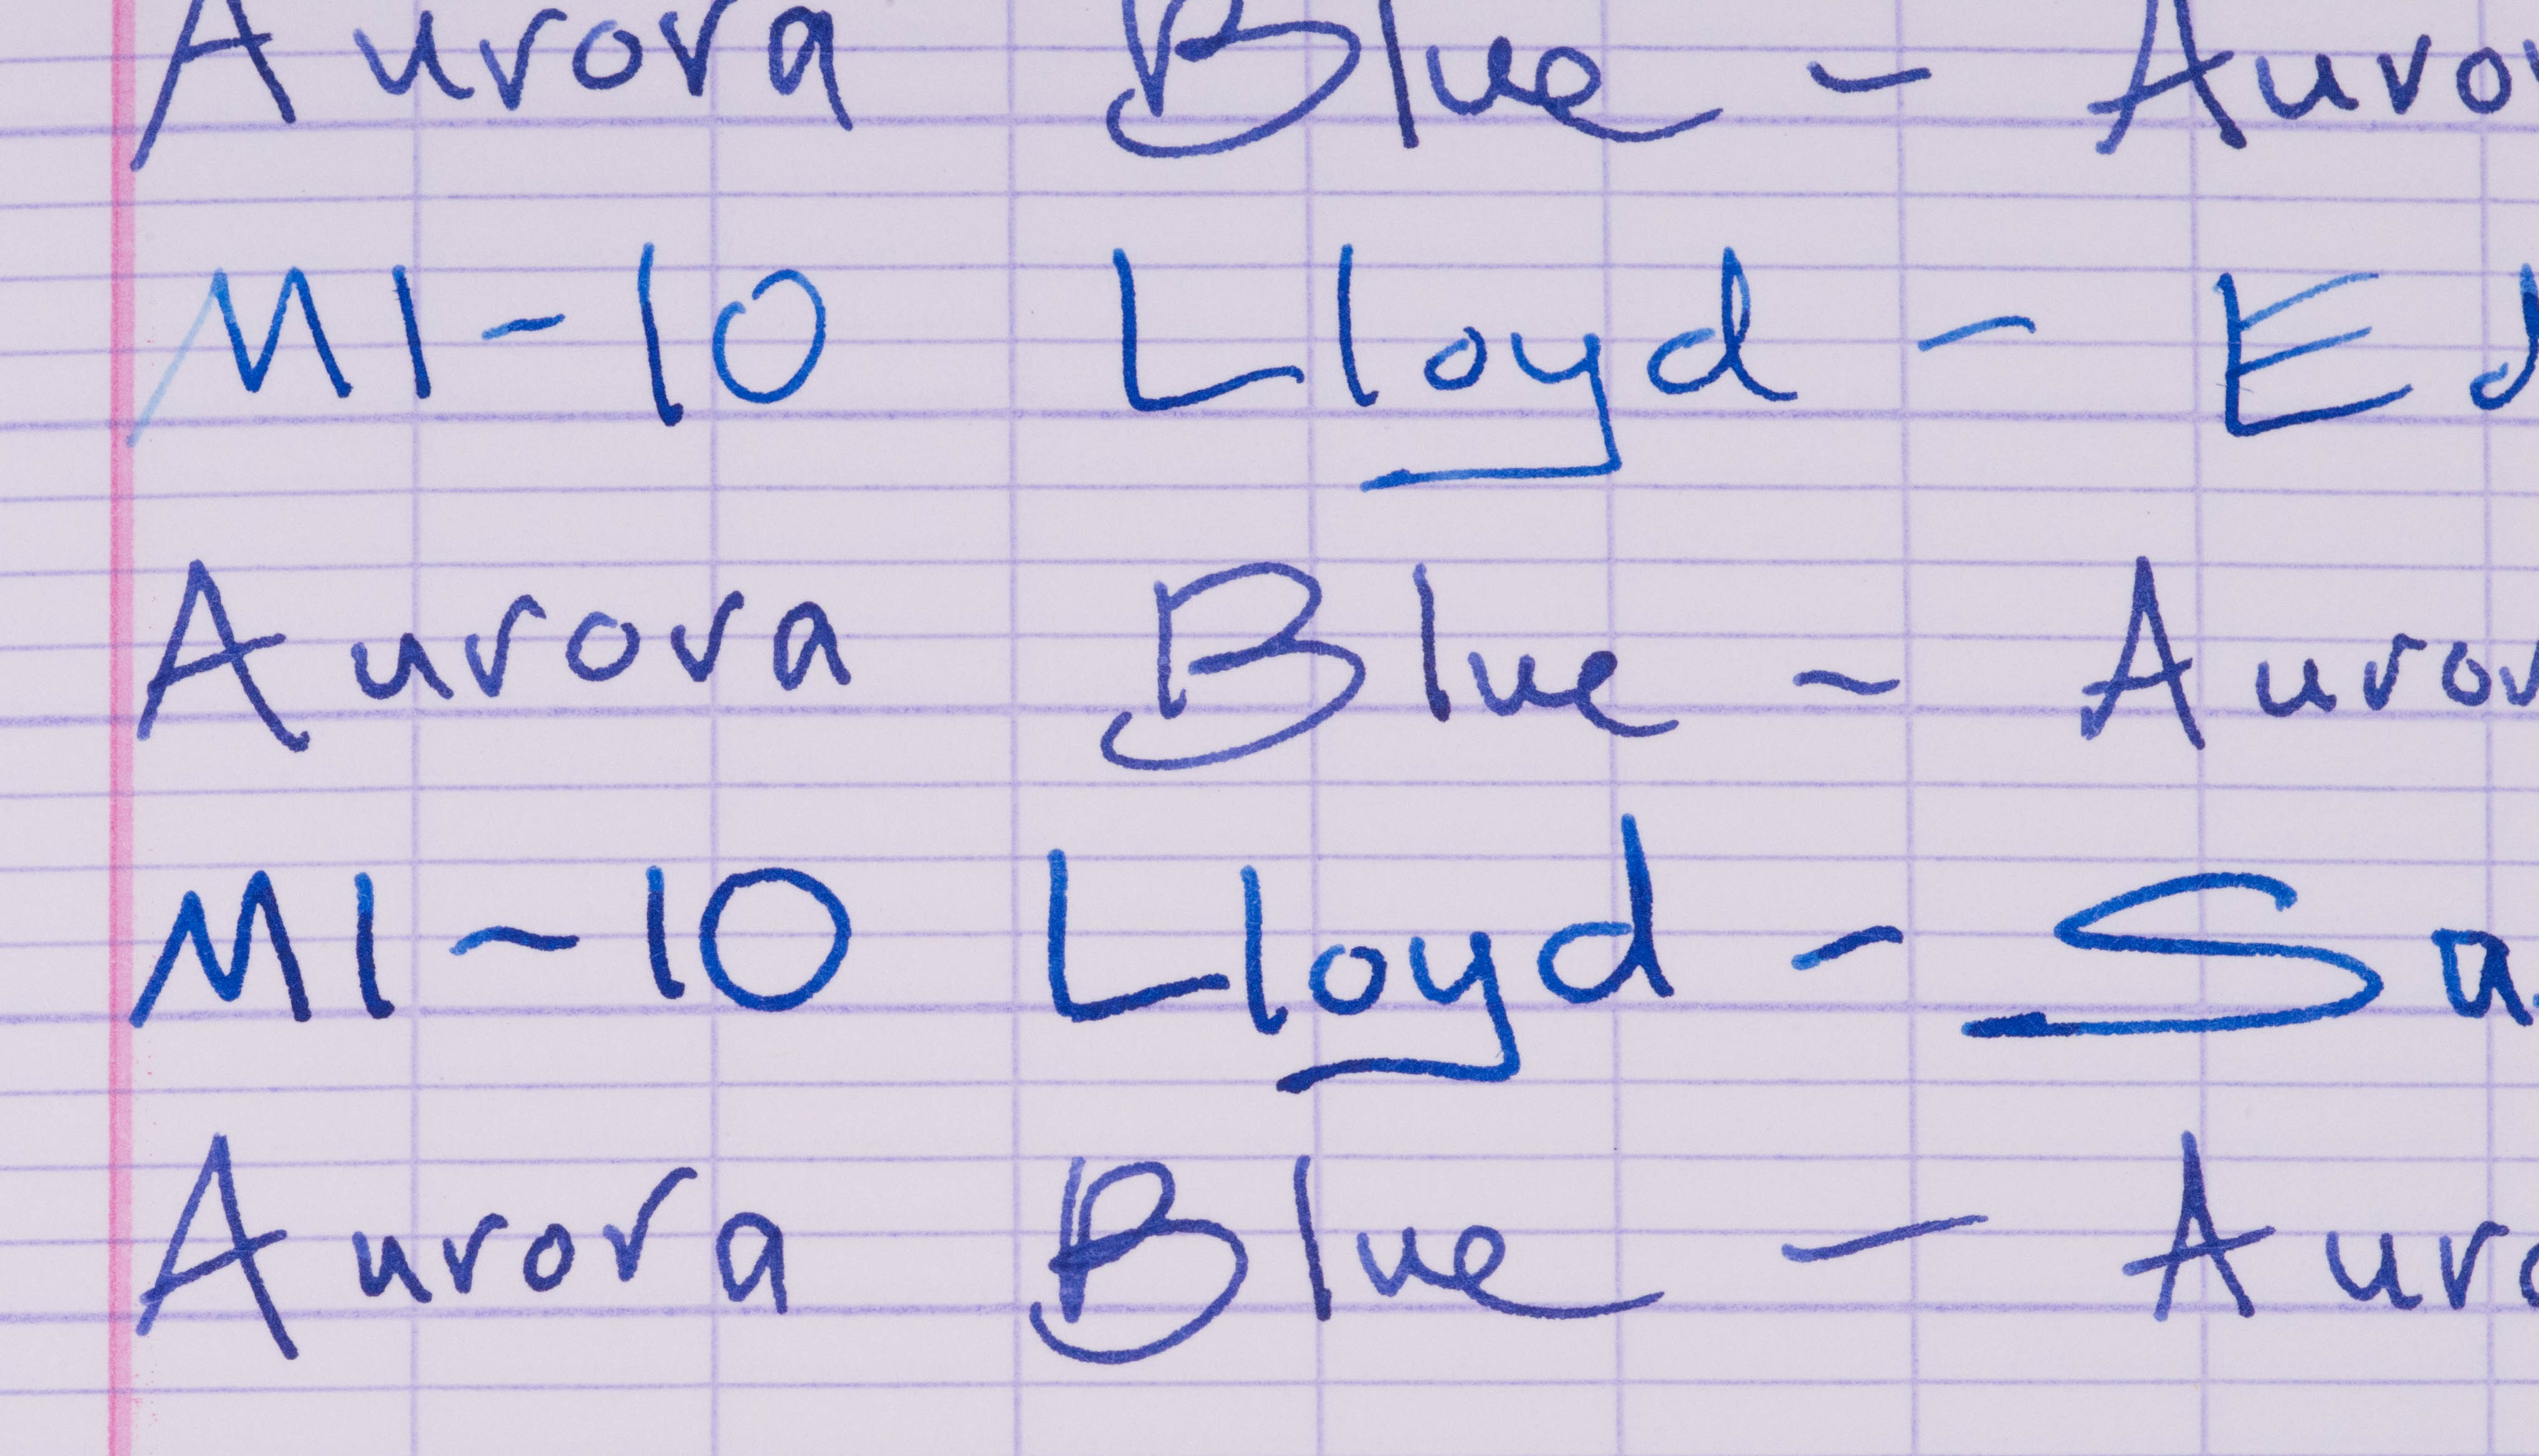 Aurora Blue - Auror
M1-10 Lloyd - Ed
Aurora Blue - Auror
M1-10 Lloyd - Sa
Aurora Blue - Auro